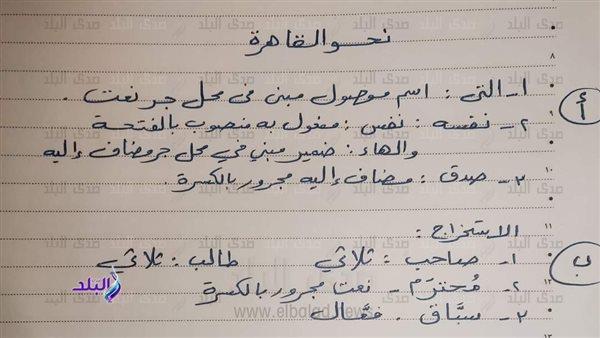 نحو القاهرة
أ
١- التى : اسم موصول مبنى فى محل جر نعت .
٢- نفسه : نفس : مفعول به منصوب بالفتحة
والهاء : ضمير مبنى في محل جر مضاف إليه
٣- صدق : مضاف إليه مجرور بالكسرة .
ب
الاستخراج :
١- صاحب : ثلاثي طالب : ثلاثي
٢- مُحترَم - نعت مجرور بالكسرة
٣- سبَّاق . فعَّال
صدى البلد
www.elbalad.news